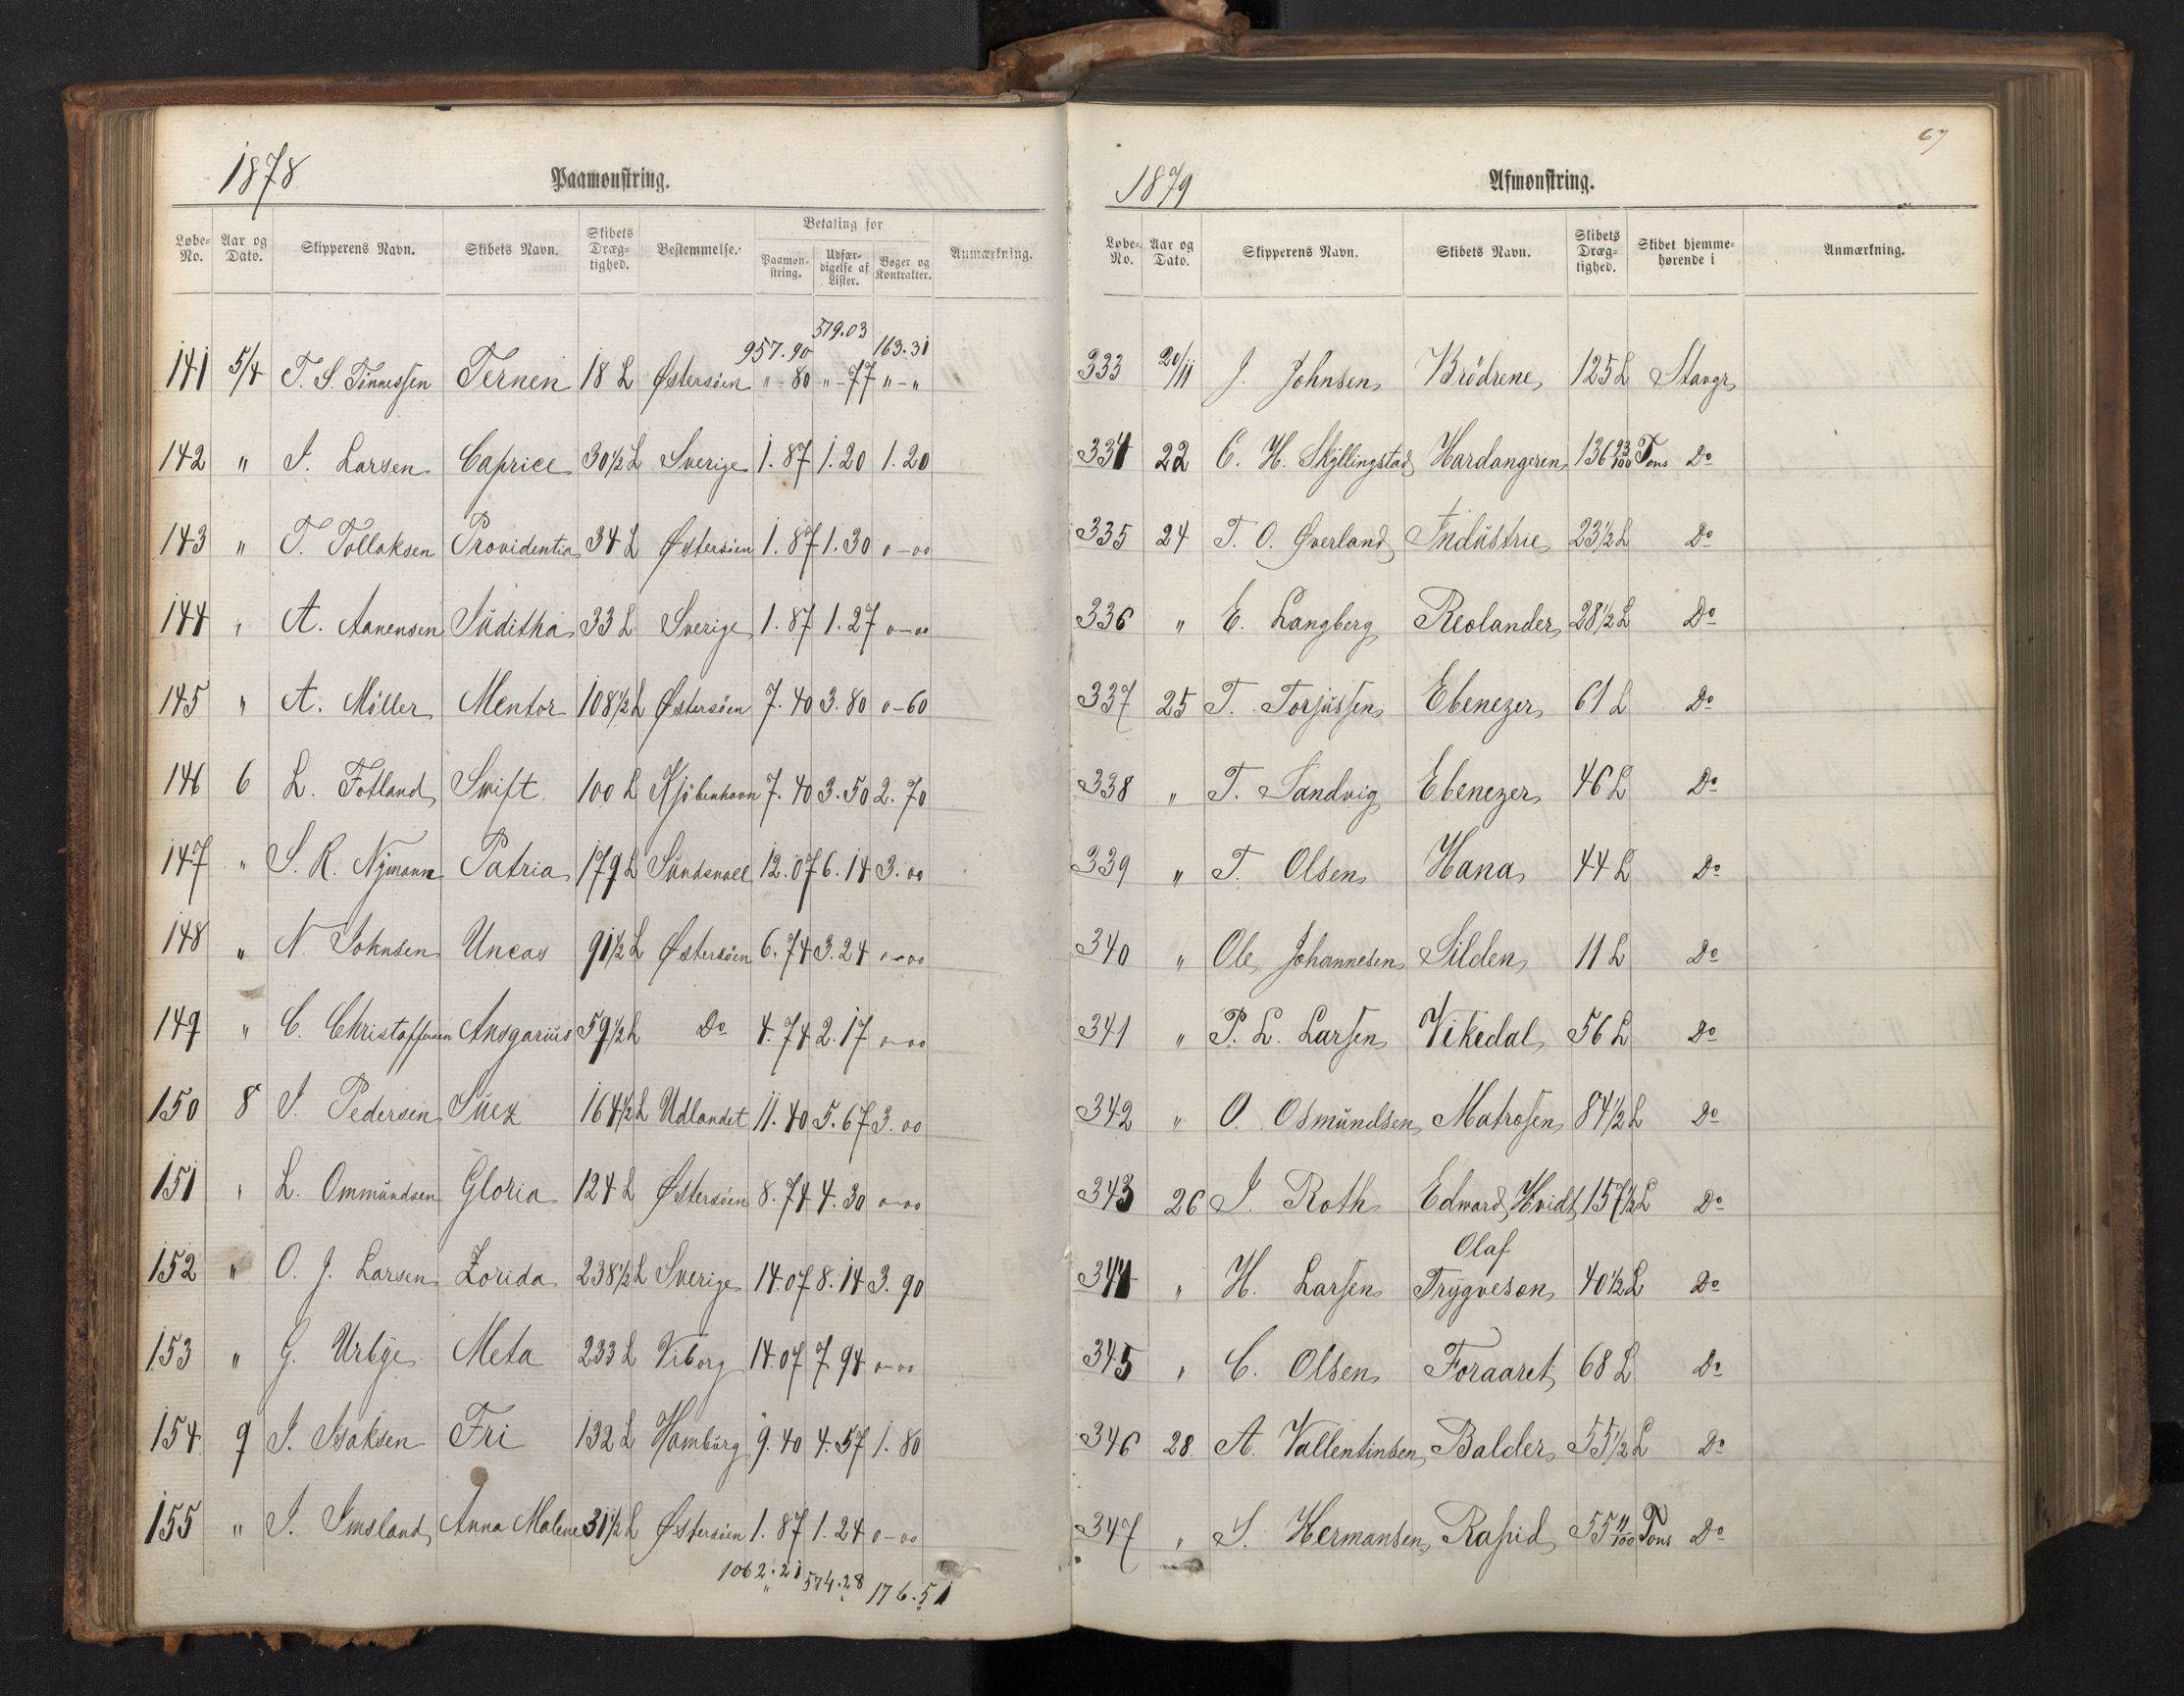 1878
Paamonstring.
Løbe-No. Aar og Dato. Skipperens Navn. Skibets Navn. Skibets Dræg-tighed. Bestemmelse. Betaling for Paamon-string. Udfær-digelse af Lister. Bøger og Kontrakter. Anmærkning.
957.90 519.03 163.31
141 5/4 T. S. Tinnessen Ternen 18 L Østersöen " - 80 " - 77 " - "
142 " I. Larsen Caprice 30 1/2 L Sverige 1.87 1.20 1.20
143 " T. Tollaksen Providentia 34 L Østersöen 1.87 1.30 0-00
144 " A. Aanensen Juditha 33 L Sverige 1.87 1.27 0-00
145 " A. Möller Mentor 108 1/2 L Østersöen 7.40 3.80 0-60
146 6 L. Fotland Swift 100 L Kjöbenhavn 7.40 3.50 2.70
147 " S. R. Nymann Patria 179 L Sundsvall 12.07 6.14 3.00
148 " N. Johnsen Uncas 91 1/2 L Østersöen 6.74 3.24 0-00
149 " C. Christoffersen Ansgarius 59 1/2 L Do 4.74 2.17 0-00
150 8 I. Pedersen Suez 164 1/2 L Udlandet 11.40 5.67 3.00
151 " L. Ommundsen Gloria 124 L Østersöen 8.74 4.30 0-00
152 " O. J. Larsen Zorida 238 1/2 L Sverige 14.07 8.14 3.90
153 " G. Urbye Meta 233 L Viborg 14.07 7.94 0-00
154 9 I. Isaksen Fri 132 L Hamburg 9.40 4.57 1.80
155 " I. Imsland Anna Malene 31 1/2 L Østersöen 1.87 1.24 0-00
1062.21 574.28 176.51
67
1879
Afmonstring.
Løbe-No. Aar og Dato. Skipperens Navn. Skibets Navn. Skibets Dræg-tighed. Skibet hjemme-hørende i Anmærkning.
333 20/11 J. Johnsen Brödrene 125 L Stavgr
334 22 C. H. Skyllingstad Hardangeren 136 23/100 Tons Do
335 24 T. O. Øverland Industrie 23 1/2 L Do
336 " E. Langberg Reolander 28 1/2 L Do
337 25 T. Torjussen Ebenezer 61 L Do
338 " T. Sandvig Ebenezer 46 L Do
339 " T. Olsen Hana 44 L Do
340 " Ole Johannesen Silden 11 L Do
341 " P. L. Larsen Vikedal 56 L Do
342 " O. Osmundsen Matrosen 84 1/2 L Do
343 26 I. Roth Edward Hvidt 157 1/2 L Do
344 " H. Larsen Olaf Trygveson 40 1/2 L Do
345 " C. Olsen Foraaret 68 L Do
346 28. A. Vallentinsen Balder 55 1/2 L Do
347 " S. Hermansen Rapid 55 11/100 Tons Do